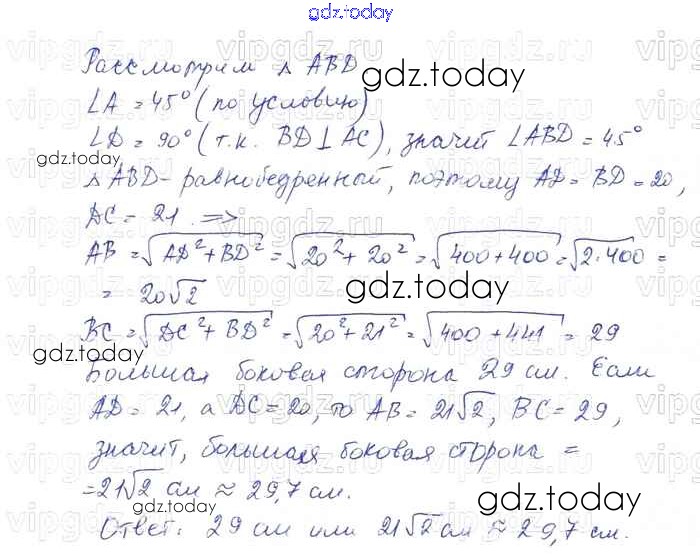 gdz.today
Рассмотрим △ ABD
gdz.today
∠A = 45° (по условию)
∠D = 90° (т.к. BD⊥AC), значит ∠ABD = 45°
gdz.today
△ABD - равнобедренный, поэтому AD = BD = 20,
DC = 21 =>
AB = √(AD² + BD²) = √(20² + 20²) = √(400 + 400) = √(2·400) =
= 20√2
gdz.today
BC = √(DC² + BD²) = √(20² + 21²) = √(400 + 441) = 29
gdz.today
Большая боковая сторона 29 см. Если
AD = 21, а DC = 20, то AB = 21√2, BC = 29,
значит, большая боковая сторона =
= 21√2 см ≈ 29,7 см.
gdz.today
gdz.today
Ответ: 29 см или 21√2 см ≈ 29,7 см.